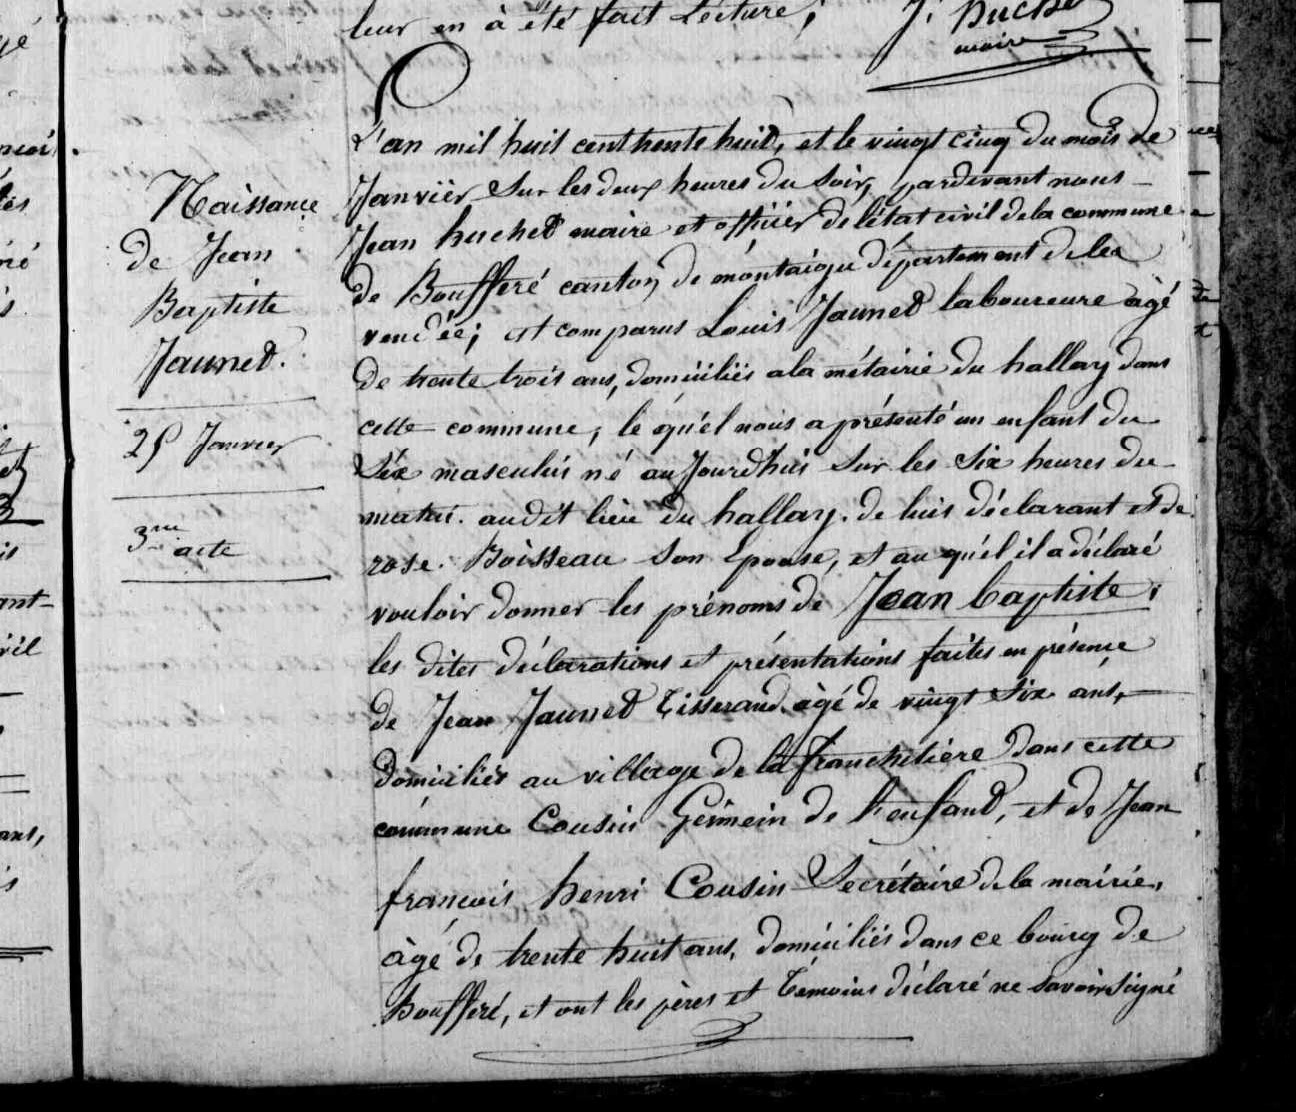 leur en à été fait Lecture;
J. huchet
maire
Naissance
de Jean
Baptiste
Jaunet.
25 Janvier
3me acte
L'an mil huit cent trente huit, et le vingt cinq du mois de
Janvier Sur les deux heures du Soir, pardevant nous
Jean huchet maire et officier de l'état civil de la commune
de Boufferé canton de montaigu département de la
vendée; est comparus Louis Jaunet laboureure àgé
de trente trois ans, domiciliés a la métairie du hallay dans
cette commune, le qu'el nous a présenté un enfant du
Séxe masculin né aujourd'huis Sur les Six heures du
matin. audit lieu du hallay. de luis déclarant et de
rose. Boisseau Son Epouse, et au qu'el il a déclaré
vouloir donner les prénoms de Jean baptiste;
les dites déclarations et présentations faites en présence
de Jean Jaunet Tisserand àgé de vingt Six ans,
domiciliés au village de la franchetière dans cette
commune Cousin Gérmein de l'enfant, et de Jean
françois henri Cousin Secrétaire de la mairie,
àgé de trente huit ans, domiciliés dans ce bourg de
Boufferé, et ont les pères et Témoins déclaré ne savoir signé